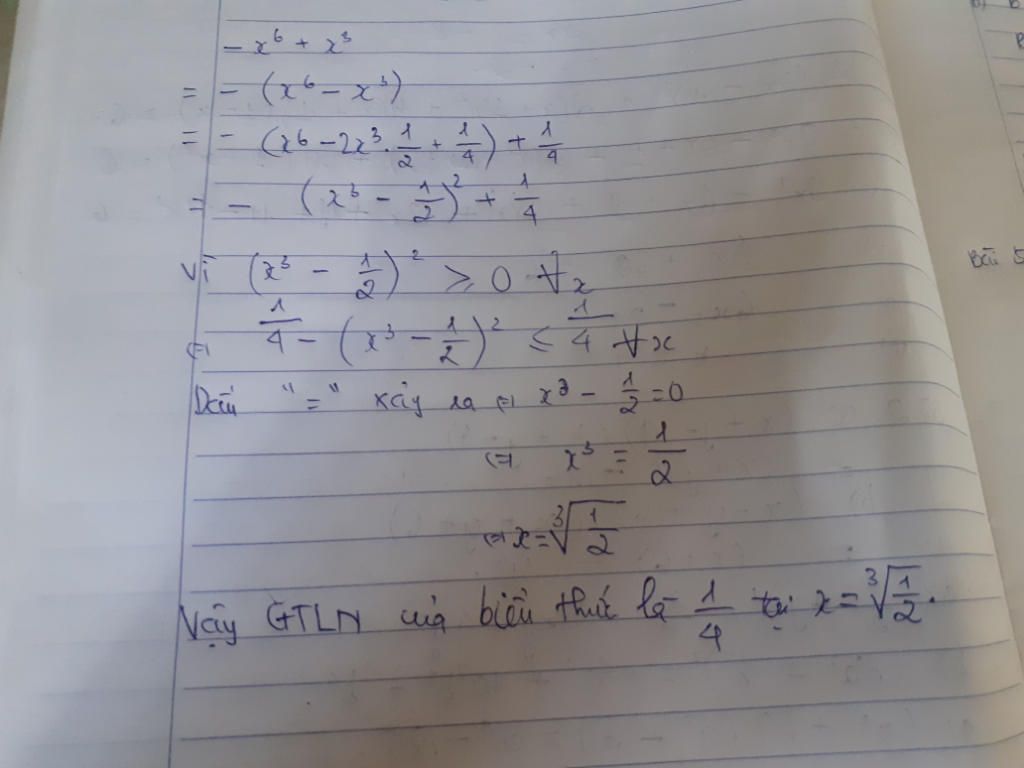 - x⁶ + x³
= - (x⁶ - x³)
= - (x⁶ - 2x³.1/2 + 1/4) + 1/4
= - (x³ - 1/2)² + 1/4
Vì (x³ - 1/2)² ≥ 0 ∀x
⇔ 1/4 - (x³ - 1/2)² ≤ 1/4 ∀x
Dấu "=" xảy ra ⇔ x³ - 1/2 = 0
⇔ x³ = 1/2
⇔ x = ∛(1/2)
Vậy GTLN của biểu thức là 1/4 tại x = ∛(1/2).
Bài 5